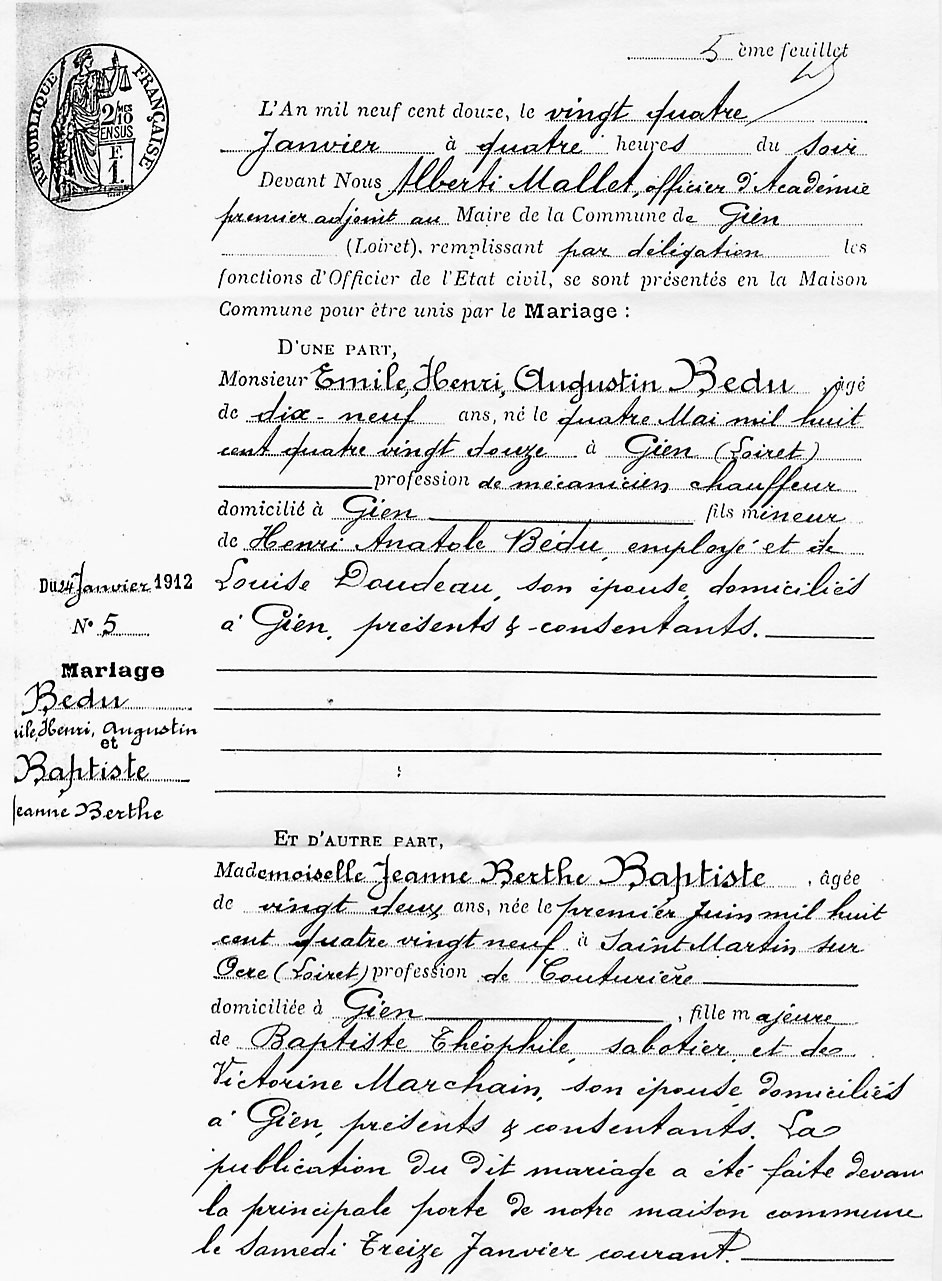 5 ème feuillet
RÉPUBLIQUE FRANÇAISE
2/10 MES
EN SUS
F.
1.
L'An mil neuf cent douze, le vingt quatre
Janvier à quatre heures du soir
Devant Nous Alberti Mallet, officier d'Académie
premier adjoint au Maire de la Commune de Gien
(Loiret), remplissant par déligation les
fonctions d'Officier de l'Etat civil, se sont présentés en la Maison
Commune pour être unis par le Mariage :
D'UNE PART,
Monsieur Emile, Henri, Augustin Bedu, âgé
de dix-neuf ans, né le quatre Mai mil huit
cent quatre vingt douze à Gien (Loiret)
profession de mécanicien chauffeur
domicilié à Gien fils mineur
de Henri Anatole Bédu, employé et de
Louise Doudeau, son épouse, domiciliés
à Gien, présents & consentants.
Du 24 Janvier 1912
N° 5
Mariage
Bedu
ile, Henri, Augustin
et
Baptiste
Jeanne Berthe
ET D'AUTRE PART,
Mademoiselle Jeanne Berthe Baptiste, âgée
de vingt deux ans, née le premier Juin mil huit
cent quatre vingt neuf à Saint Martin sur
Ocre (Loiret) profession de Couturière
domiciliée à Gien, fille majeure
de Baptiste Théophile, sabotier, et de
Victorine Marchain, son épouse, domiciliés
à Gien, présents & consentants. La
publication du dit mariage a été faite devan
la principale porte de notre maison commune
le Samedi Treize Janvier courant.